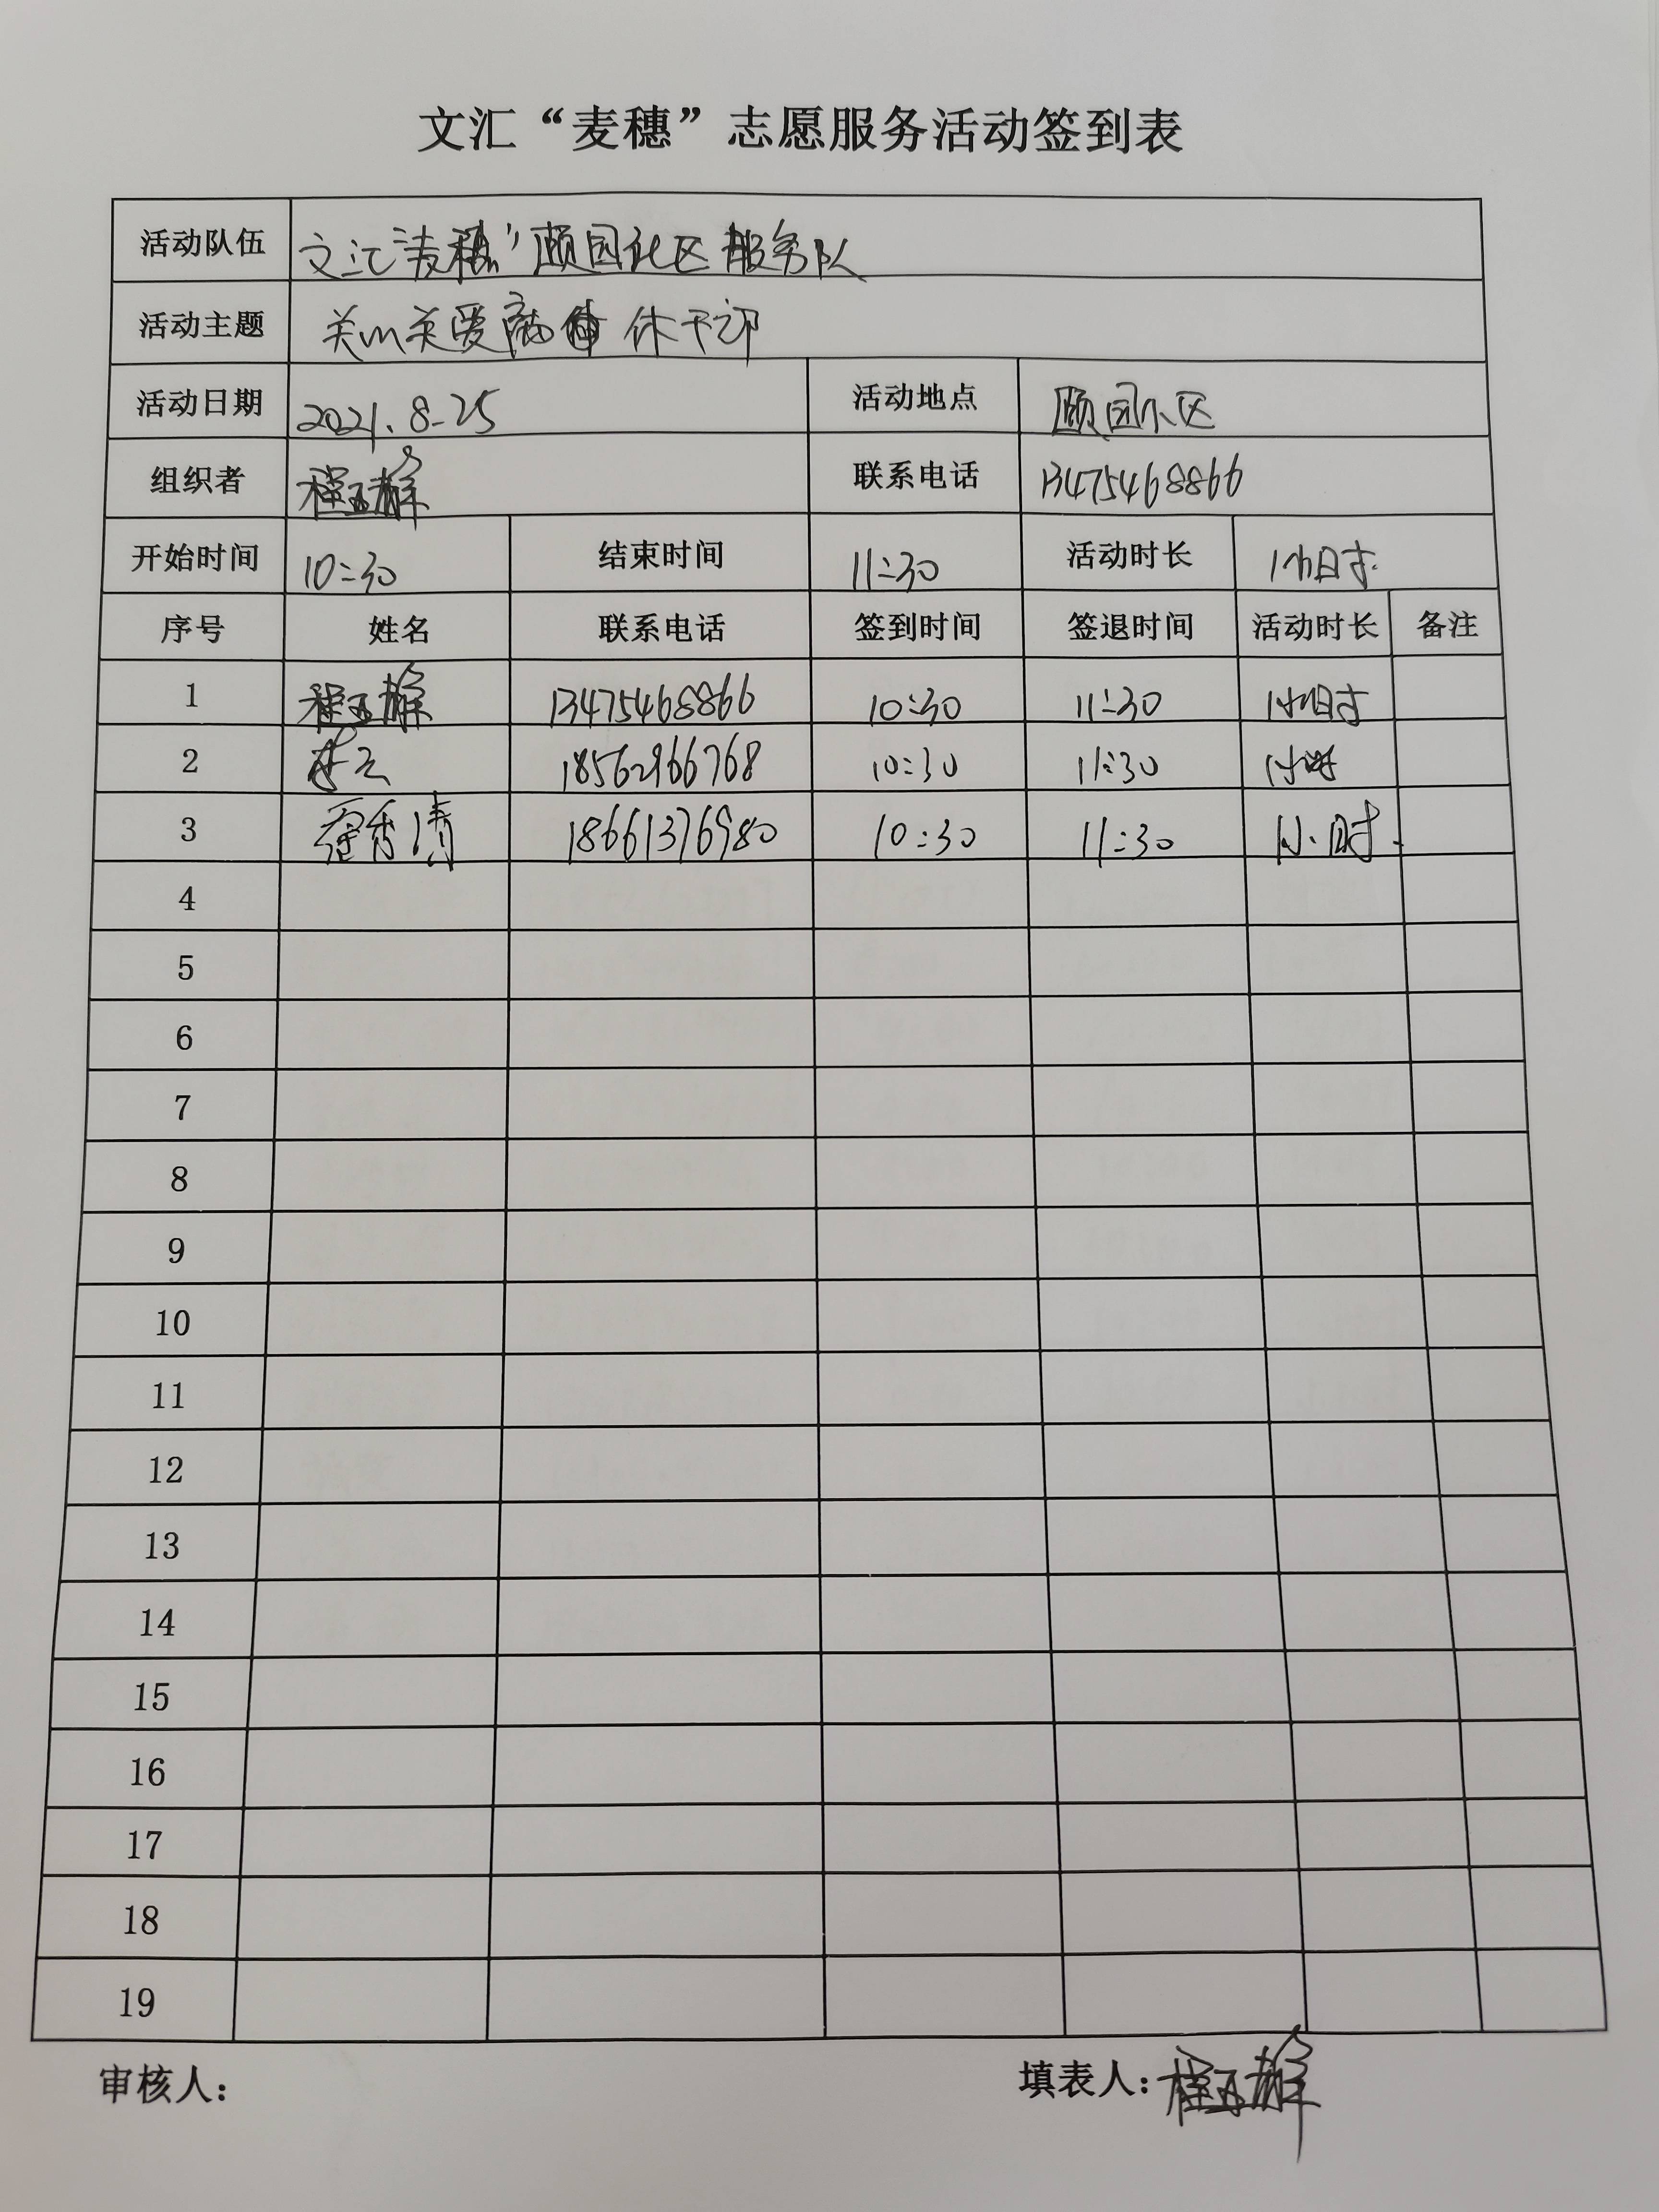 文汇“麦穗”志愿服务活动签到表
活动队伍 文汇“麦穗”颐园社区服务队
活动主题 关心关爱离休干部
活动日期 2021.8.25 活动地点 颐园小区
组织者 联系电话 13475468866
开始时间 10:30 结束时间 11:30 活动时长 1小时
序号 姓名 联系电话 签到时间 签退时间 活动时长 备注
1 13475468866 10:30 11:30 1小时
2 18562966768 10:30 11:30 1小时
3 18661376980 10:30 11:30 1小时
4
5
6
7
8
9
10
11
12
13
14
15
16
17
18
19
审核人： 填表人：